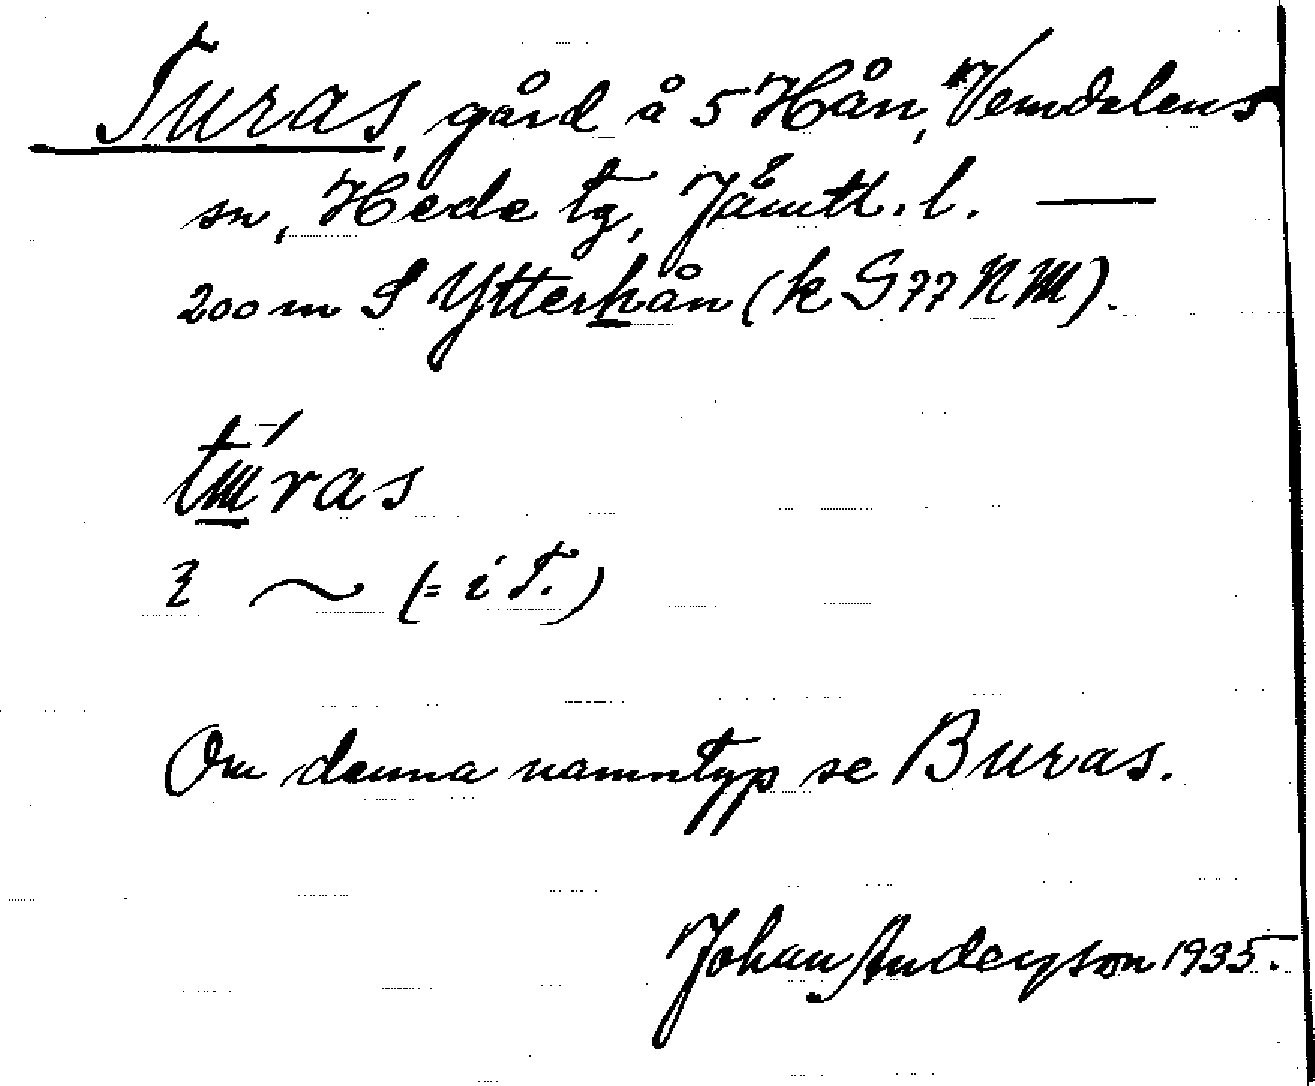 Turas, gård å 5 Hån, Vemdalens
sn, Hede tg, Jämtl. l. —
200 m S Ytterhån (k S 77 NM).
túras
i ~ (= i T.)
Om denna namntyp se Buras.
Johan Anderson 1935.